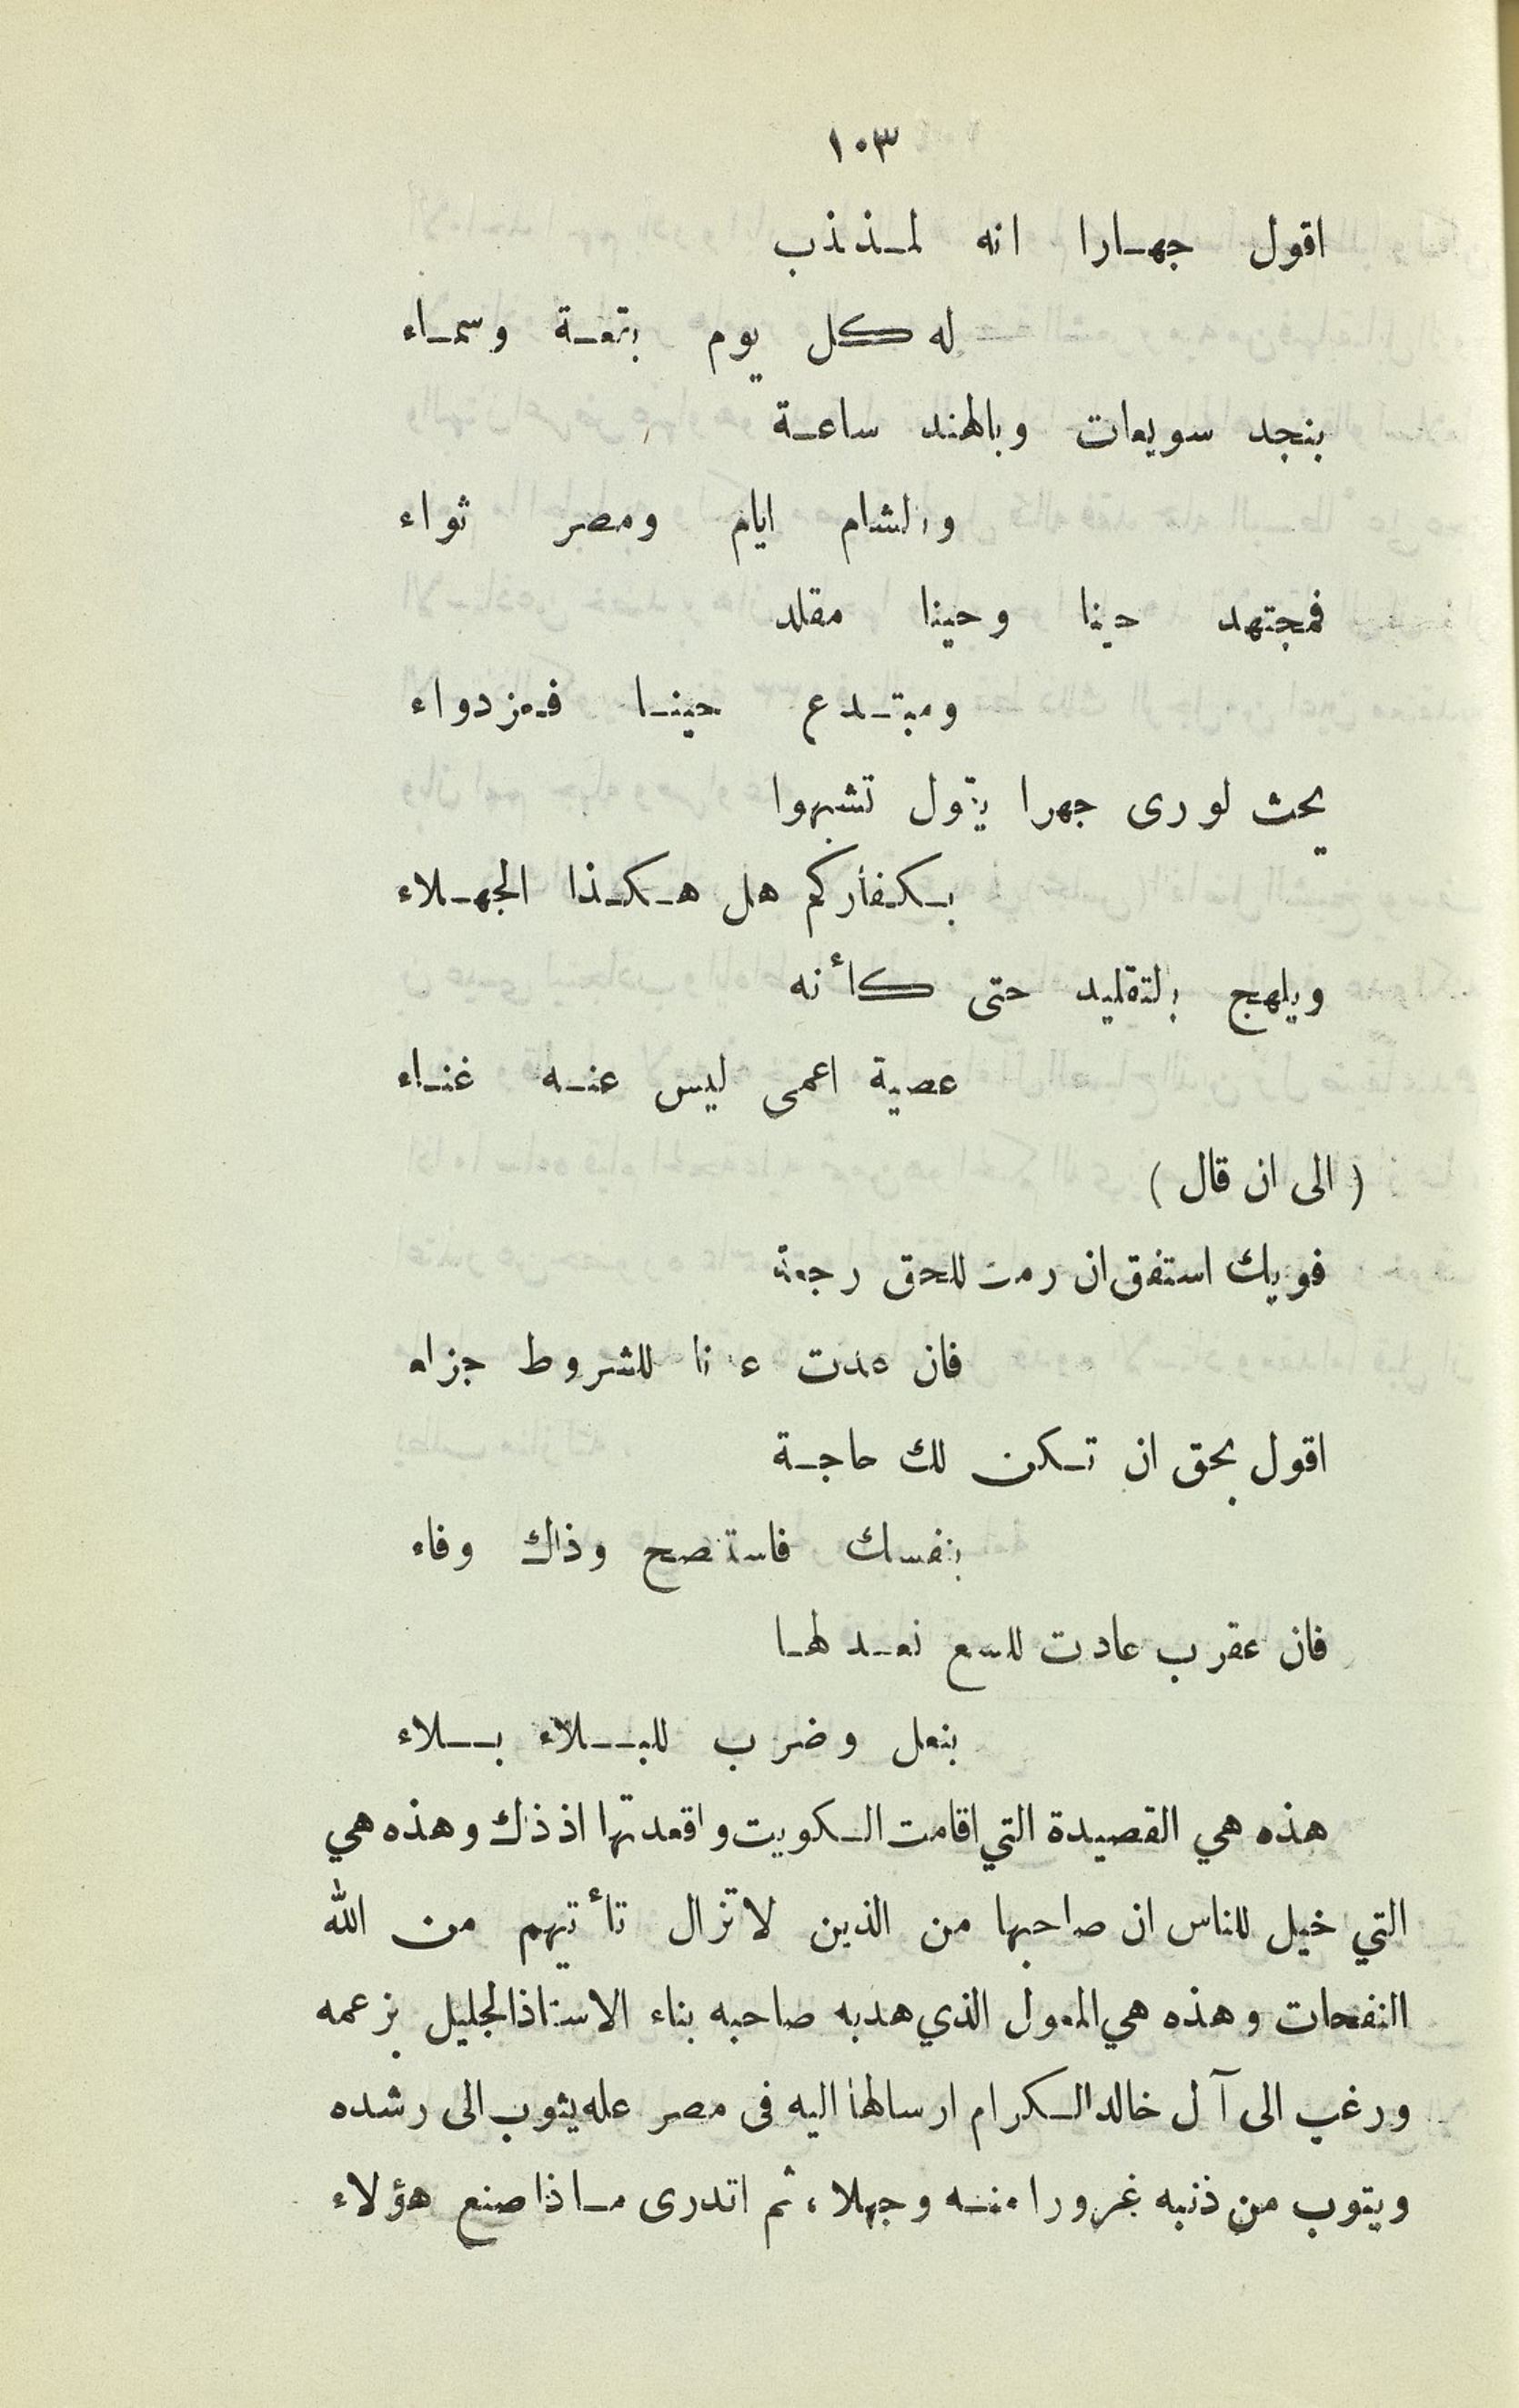 ١٠٣
اقول جهارا انه لمذذب
له كل يوم بقعة وسماء
بنجد سويعات وبالهند ساعة
والشام ايام ومصر ثواء
فمجتهد حينا وحينا مقلد
ومبتدع حينا فمزدواء
يحث لورى جهرا يقول تشبهوا
بكفاركم هل هكذا الجهلاء
ويلهج بالتقليد حتى كأنه
عصية اعمى ليس عنه غناء
( الى ان قال )
فويك استفق ان رمت للحق رجعة
فان عدت عدنا للشروط جزاء
اقول بحق ان تكن لك حاجة
بنفسك فاستصح وذاك وفاء
فان عقرب عادت للسع نعد لها
بنعل وضرب للبلاء بلاء
هذه هي القصيدة التي اقامت الكويت واقعدتها اذ ذاك وهذه هي
التي خيل للناس ان صاحبها من الذين لا تزال تأتيهم من الله
النفحات وهذه هي المعول الذي هد به صاحبه بناء الاستاذ الجليل بزعمه
ورغب الى آل خالد الكرام ارسالها اليه فى مصر عله يثوب الى رشده
ويتوب من ذنبه غرورا منه وجهلا، ثم اتدرى ماذا صنع هؤلاء